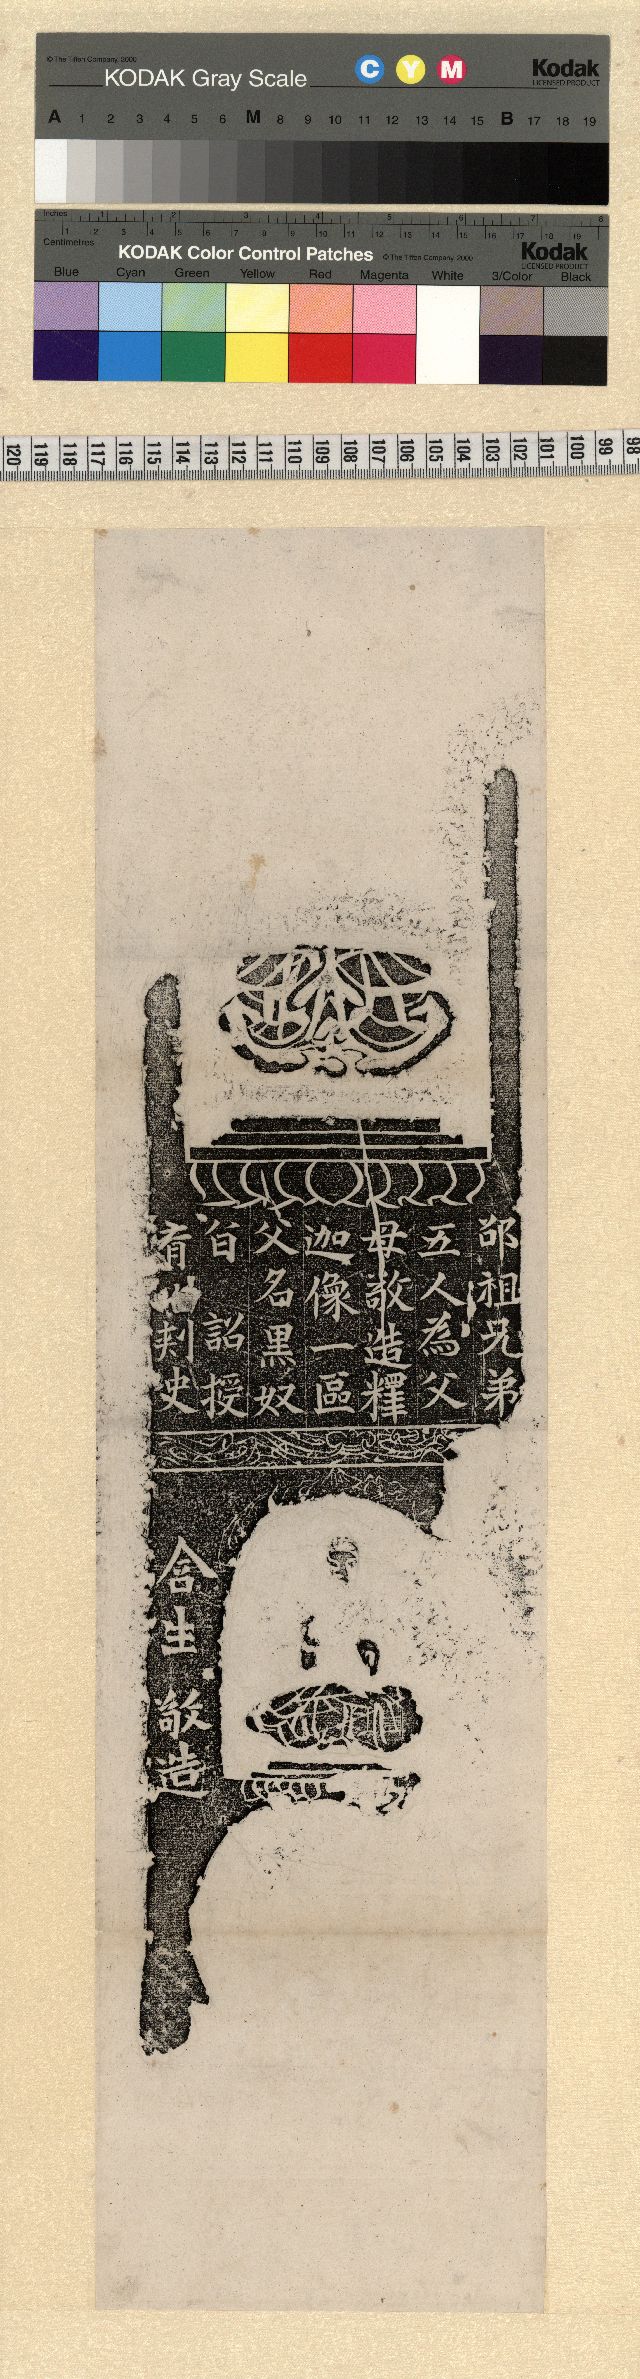 © The Tiffen Company, 2000
KODAK Gray Scale
C Y M
Kodak
LICENSED PRODUCT
A 1 2 3 4 5 6 M 8 9 10 11 12 13 14 15 B 17 18 19
Inches 1 2 3 4 5 6 7 8
Centimetres 1 2 3 4 5 6 7 8 9 10 11 12 13 14 15 16 17 18 19
KODAK Color Control Patches
© The Tiffen Company, 2000
Kodak
LICENSED PRODUCT
Blue Cyan Green Yellow Red Magenta White 3/Color Black
120 119 118 117 116 115 114 113 112 111 110 109 108 107 106 105 104 103 102 101 100 99 98
邰祖兄弟
五人為父
母敬造釋
迦像一區
父名黑奴
百 詔授
刾史
合生敬造